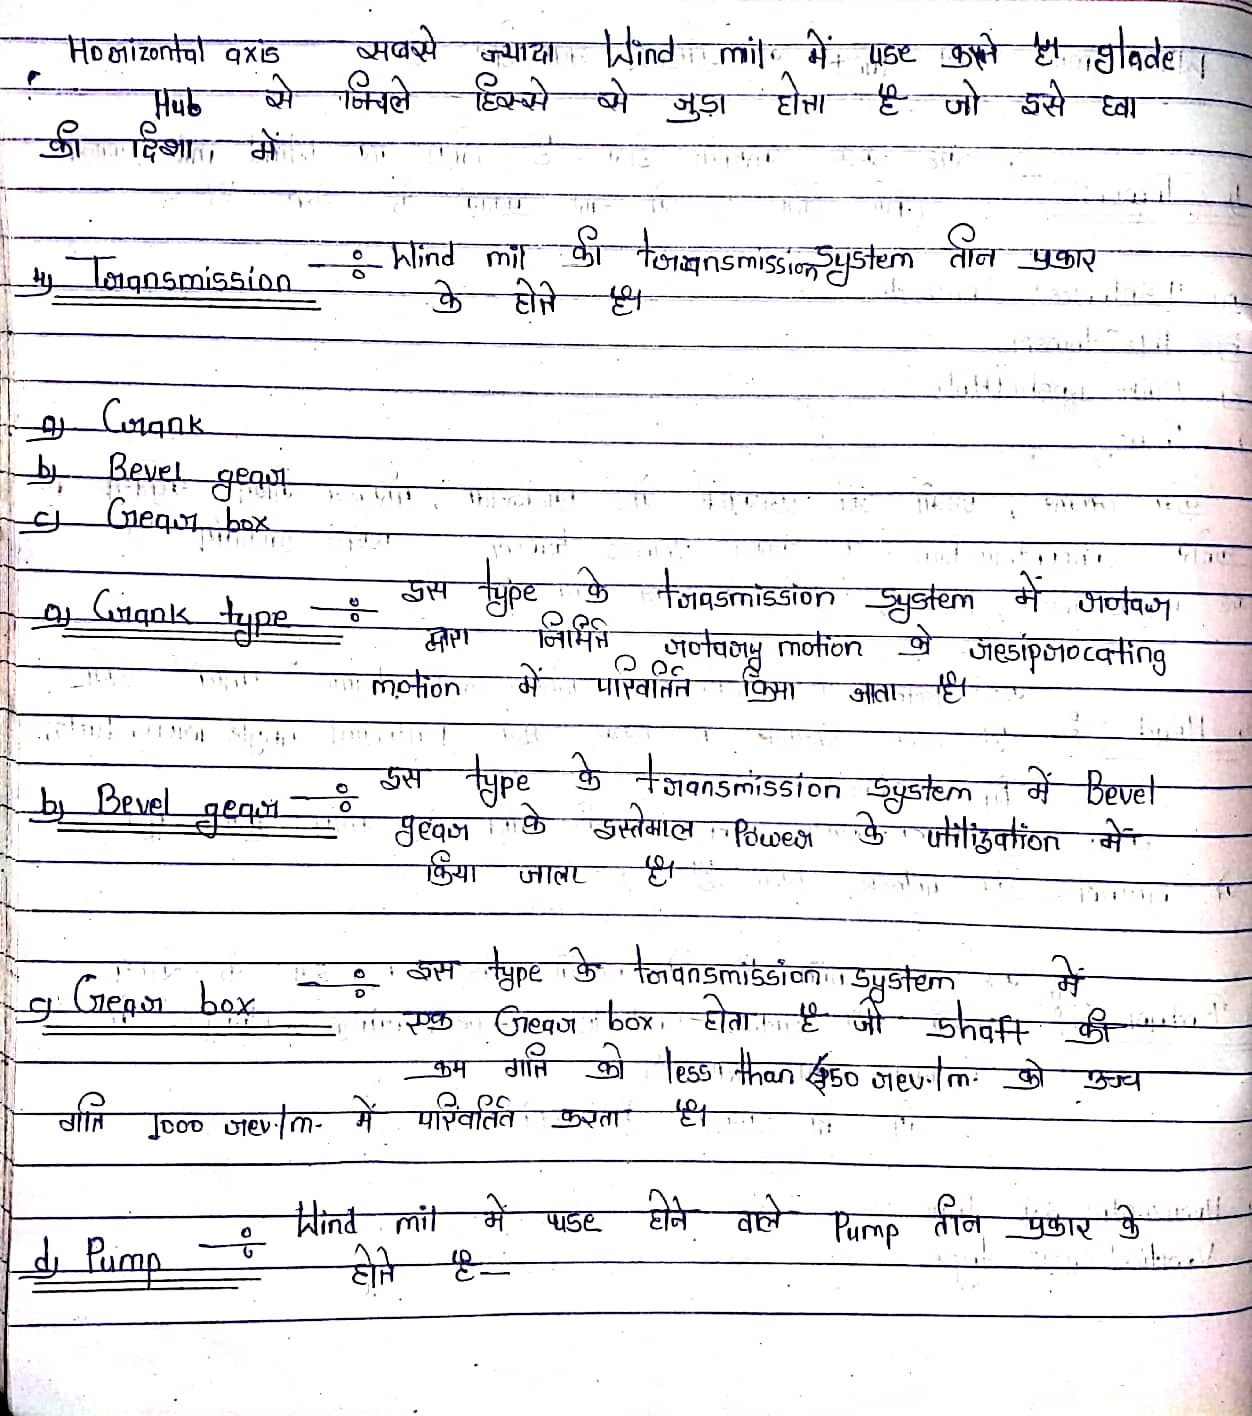 Horizontal axis सबसे ज्यादा Wind mil में use करते है। glade।
Hub से निचले हिस्से से जुड़ा होता है जो इसे हवा
की दिशा में
4) Transmission ÷ Wind mil की transmission system तीन प्रकार
के होते है।
a) Crank
b) Bevel gear
c) Gear box
a) Crank type ÷ इस type के trasmission system में rotar
द्वारा निर्मित rotary motion को resiprocating
motion में परिवर्तित किया जाता है।
b) Bevel gear ÷ इस type के transmission system में Bevel
gear के इस्तेमाल Power के utilization में
किया जाता है।
c) Gear box ÷ इस type के transmission system में
एक Gear box होता है जो shaft की
कम गति को less than 50 rev./m. को उच्च
गति 1000 rev./m. में परिवर्तित करता है।
d) Pump ÷ Wind mil में use होने वाले Pump तीन प्रकार के
होते है—